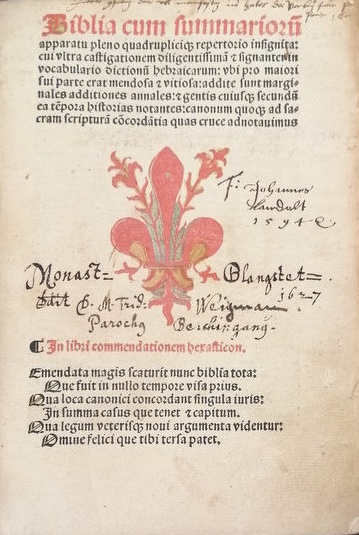 Biblia cum summariorū
apparatu pleno quadrupliciq; repertorio insignita:
cui vltra castigationem diligentissimā & signanter in
vocabulario dictionū hebraicarum: vbi pro maiori
sui parte erat mendosa & vitiosa: addite sunt margi⸗
nales additiones annales: & gentis cuiusq; secundū
ea tēpora historias notantes: canonum quoq; ad sa⸗
cram scripturā cōcordātia quas cruce adnotauimus
F: Johannes
1594
Monast=
1627
D. M. Frid: Weigman
Parochg Berchingang.
¶ In libri commendationem hexasticon.
Emendata magis scaturit nunc biblia tota:
Que fuit in nullo tempore visa prius.
Qua loca canonici concordant singula iuris:
In summa casus que tenet & capitum.
Qua legum veterisq; noui argumenta videntur:
Omine felici que tibi tersa patet.